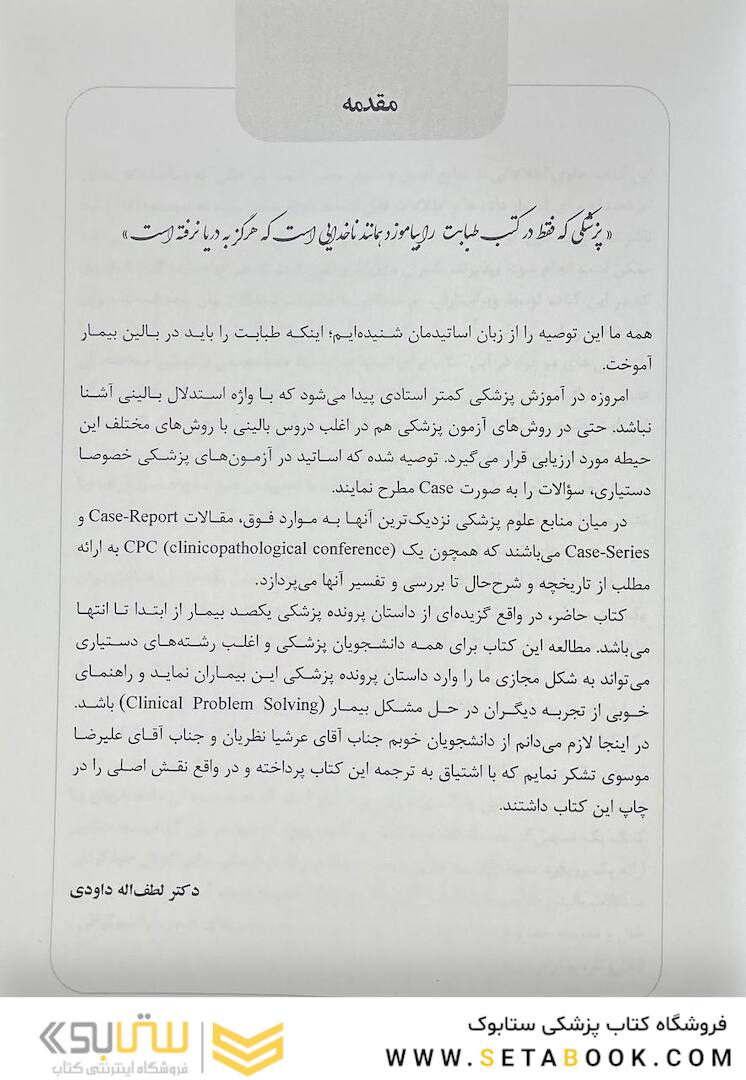 مقدمه
«پزشکی که فقط در کتب طبابت را بیاموزد همانند ناخدایی است که هرگز به دریا نرفته است»
همه ما این توصیه را از زبان اساتیدمان شنیده‌ایم؛ اینکه طبابت را باید در بالین بیمار
آموخت.
امروزه در آموزش پزشکی کمتر استادی پیدا می‌شود که با واژه استدلال بالینی آشنا
نباشد. حتی در روش‌های آزمون پزشکی هم در اغلب دروس بالینی با روش‌های مختلف این
حیطه مورد ارزیابی قرار می‌گیرد. توصیه شده که اساتید در آزمون‌های پزشکی خصوصا
دستیاری، سؤالات را به صورت Case مطرح نمایند.
در میان منابع علوم پزشکی نزدیک‌ترین آنها به موارد فوق، مقالات Case-Report و
Case-Series می‌باشند که همچون یک CPC (clinicopathological conference) به ارائه
مطلب از تاریخچه و شرح‌حال تا بررسی و تفسیر آنها می‌پردازد.
کتاب حاضر، در واقع گزیده‌ای از داستان پرونده پزشکی یکصد بیمار از ابتدا تا انتها
می‌باشد. مطالعه این کتاب برای همه دانشجویان پزشکی و اغلب رشته‌های دستیاری
می‌تواند به شکل مجازی ما را وارد داستان پرونده پزشکی این بیماران نماید و راهنمای
خوبی از تجربه دیگران در حل مشکل بیمار (Clinical Problem Solving) باشد.
در اینجا لازم می‌دانم از دانشجویان خوبم جناب آقای عرشیا نظریان و جناب آقای علیرضا
موسوی تشکر نمایم که با اشتیاق به ترجمه این کتاب پرداخته و در واقع نقش اصلی را در
چاپ این کتاب داشتند.
دکتر لطف‌اله داودی
فروشگاه کتاب پزشکی ستابوک
WWW.SETABOOK.COM
ستابوک
فروشگاه اینترنتی کتاب